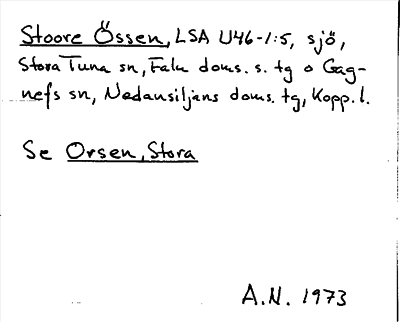 Stoore Össen, LSA U46-1:5, sjö,
Stora Tuna sn, Falu doms. s. tg o Gag-
nefs sn, Nedansiljans doms. tg, Kopp. l.
Se Orsen, Stora
A.N. 1973